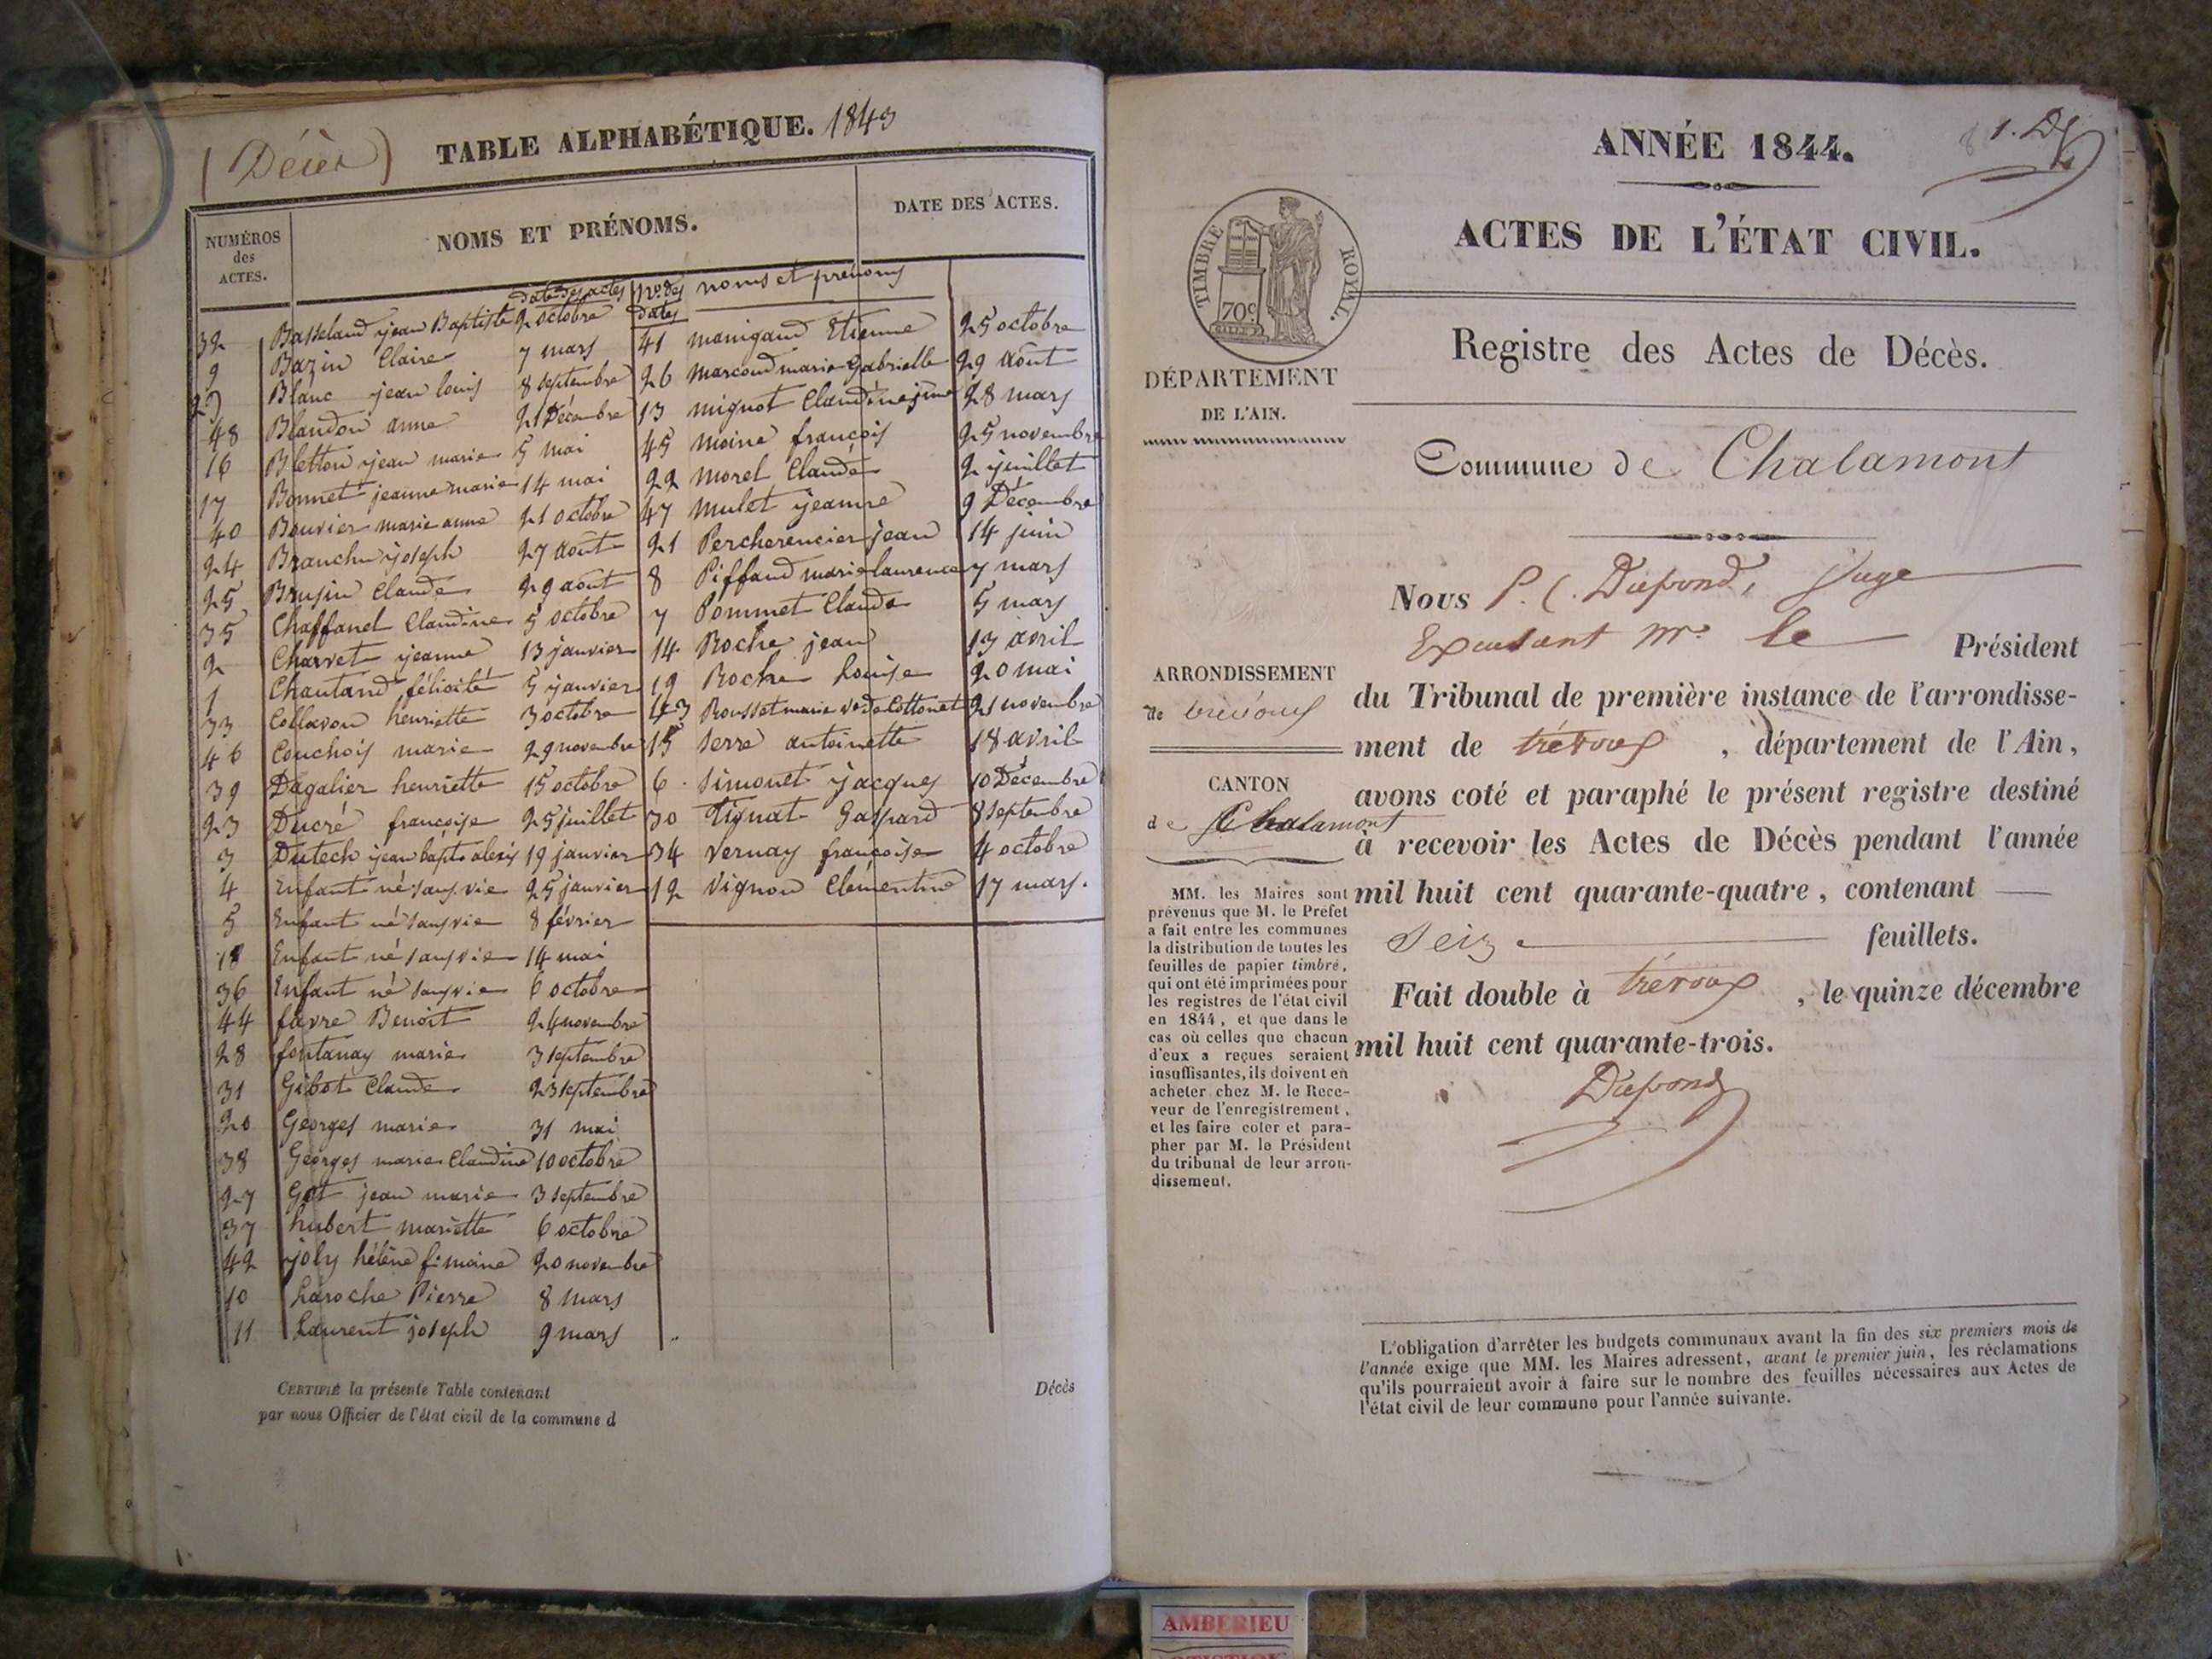 (Décès) TABLE ALPHABÉTIQUE. 1843
NUMÉROS
des
ACTES.
NOMS ET PRÉNOMS.
DATE DES ACTES.
date des actes nos des noms et prénoms
dates
32 Basseland jean Baptiste 2 octobre
9 Bazin Claire 7 mars
29 Blanc jean louis 8 septembre
48 Blandon anne 21 Décembre
16 Bletton jean marie 5 mai
17 Bonnet jeanne marie 14 mai
40 Bouvier marie anne 21 octobre
24 Branchu joseph 27 août
25 Brusin Claude 29 août
35 Chaffanel Claudine 5 octobre
2 Charvet jeanne 13 janvier
1 Chautand félicité 5 janvier
33 Collavon henriette 3 octobre
46 Couchois marie 29 novembre
39 Dagalier henriette 15 octobre
23 Ducré françoise 25 juillet
3 Dutech jean bapte alexis 19 janvier
4 Enfant né sans vie 25 janvier
5 Enfant né sans vie 8 février
18 Enfant né sans vie 14 mai
36 Enfant né sans vie 6 octobre
44 favre Benoit 24 novembre
28 fontanay marie 3 septembre
31 Gibot Claude 23 septembre
20 Georges marie 31 mai
38 Georges marie Claudine 10 octobre
27 Got jean marie 3 septembre
37 hubert mariette 6 octobre
42 joly hélène f. moine 20 novembre
10 Laroche Pierre 8 mars
11 Laurent joseph 9 mars
41 manigand Etienne 25 octobre
26 marcoud marie Gabrielle 29 août
13 mignot Claudine 28 mars
45 moine françois 25 novembre
22 morel Claude 2 juillet
47 mulet jeanne 9 Décembre
21 Percherencier jean 14 juin
8 Piffaud marie laurence 7 mars
7 Pommet Claude 5 mars
14 Roche jean 13 avril
19 Roche Louise 20 mai
43 Rousset marie ve de Cottonet 21 novembre
15 Serre antoinette 18 avril
6 Simonet jacques 10 Décembre
30 Tignat Gaspard 8 septembre
34 Vernay françoise 4 octobre
12 Vignon Clémentine 17 mars.
CERTIFIÉ la présente Table contenant Décès
par nous Officier de l'état civil de la commune d
ANNÉE 1844.
ACTES DE L'ÉTAT CIVIL.
TIMBRE ROYAL.
70c
Registre des Actes de Décès.
DÉPARTEMENT
DE L'AIN.
Commune de Chalamont
Nous P. C. Dupond, Juge
Exputant Mr le Président
ARRONDISSEMENT
de trévoux
CANTON
de Chalamont
du Tribunal de première instance de l'arrondisse-
ment de trévoux, département de l'Ain,
avons coté et paraphé le présent registre destiné
à recevoir les Actes de Décès pendant l'année
mil huit cent quarante-quatre, contenant
Seize feuillets.
Fait double à trévoux, le quinze décembre
mil huit cent quarante-trois.
Dupond
MM. les Maires sont
prévenus que M. le Préfet
a fait entre les communes
la distribution de toutes les
feuilles de papier timbré,
qui ont été imprimées pour
les registres de l'état civil
en 1844, et que dans le
cas où celles que chacun
d'eux a reçues seraient
insuffisantes, ils doivent en
acheter chez M. le Rece-
veur de l'enregistrement,
et les faire coter et para-
pher par M. le Président
du tribunal de leur arron-
dissement.
L'obligation d'arrêter les budgets communaux avant la fin des six premiers mois de
l'année exige que MM. les Maires adressent, avant le premier juin, les réclamations
qu'ils pourraient avoir à faire sur le nombre des feuilles nécessaires aux Actes de
l'état civil de leur commune pour l'année suivante.
AMBERIEU